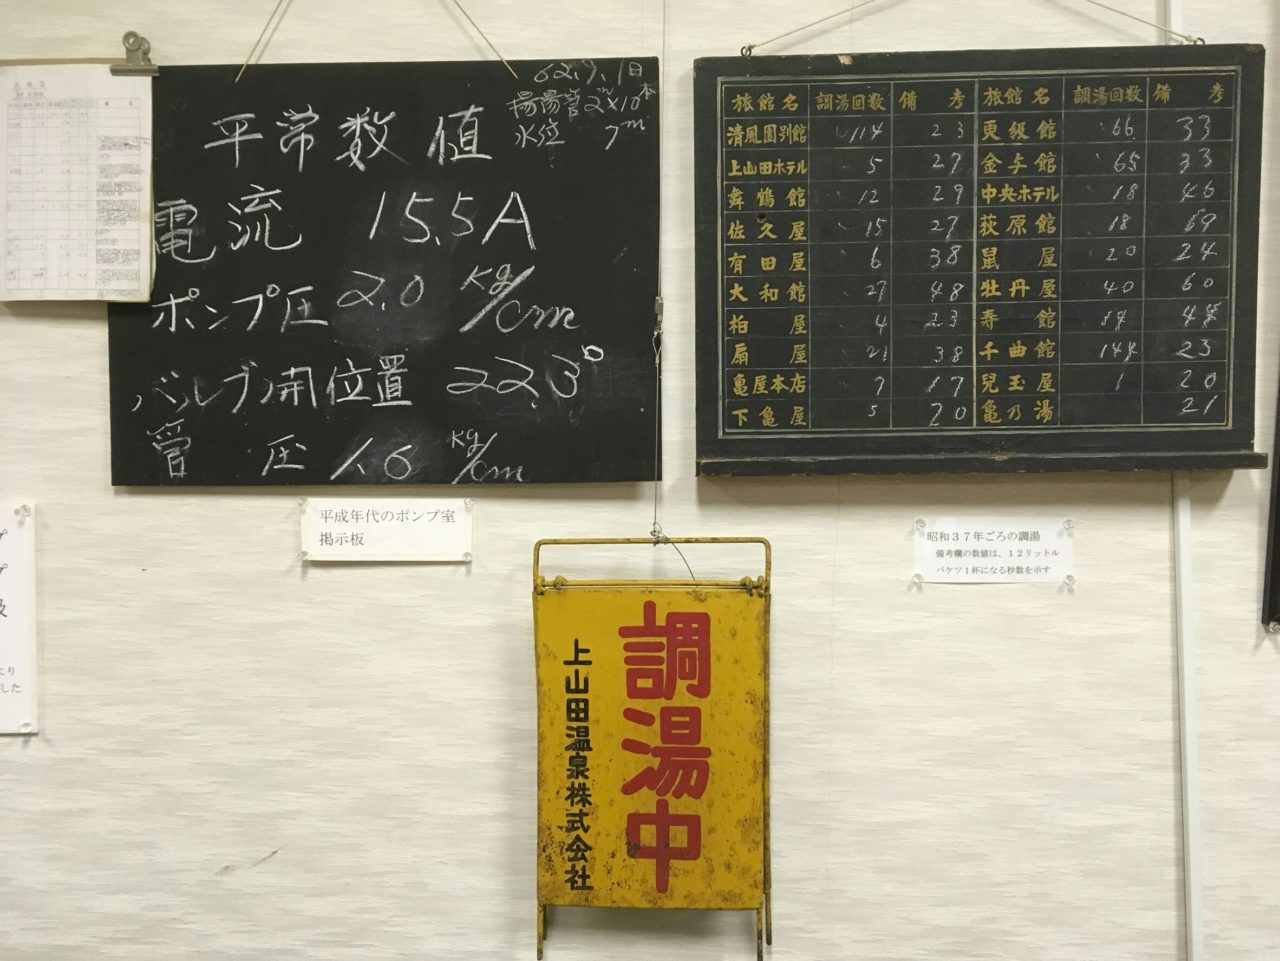 62.9.1日
揚湯管2〃×10本
水位 7m
平常数値
電流 15.5A
ポンプ圧 2.0 kg/cm
バルブ開位置 22.3°
管 圧 1.6 kg/cm
平成年代のポンプ室
掲示板
旅館名 調湯回数 備考 旅館名 調湯回数 備考
清風園別館 114 23 更級館 66 33
上山田ホテル 5 27 金与館 65 33
舞鶴館 12 29 中央ホテル 18 46
佐久屋 15 27 荻原館 18 69
有田屋 6 38 鼠屋 20 24
大和館 27 48 牡丹屋 40 60
柏屋 4 23 寿館
扇屋 21 38 千曲館 144 23
亀屋本店 7 17 兒玉屋 1 20
下亀屋 5 20 亀乃湯 21
昭和37年ごろの調湯
備考欄の数値は、12リットル
バケツ1杯になる秒数を示す
調湯中
上山田温泉株式会社